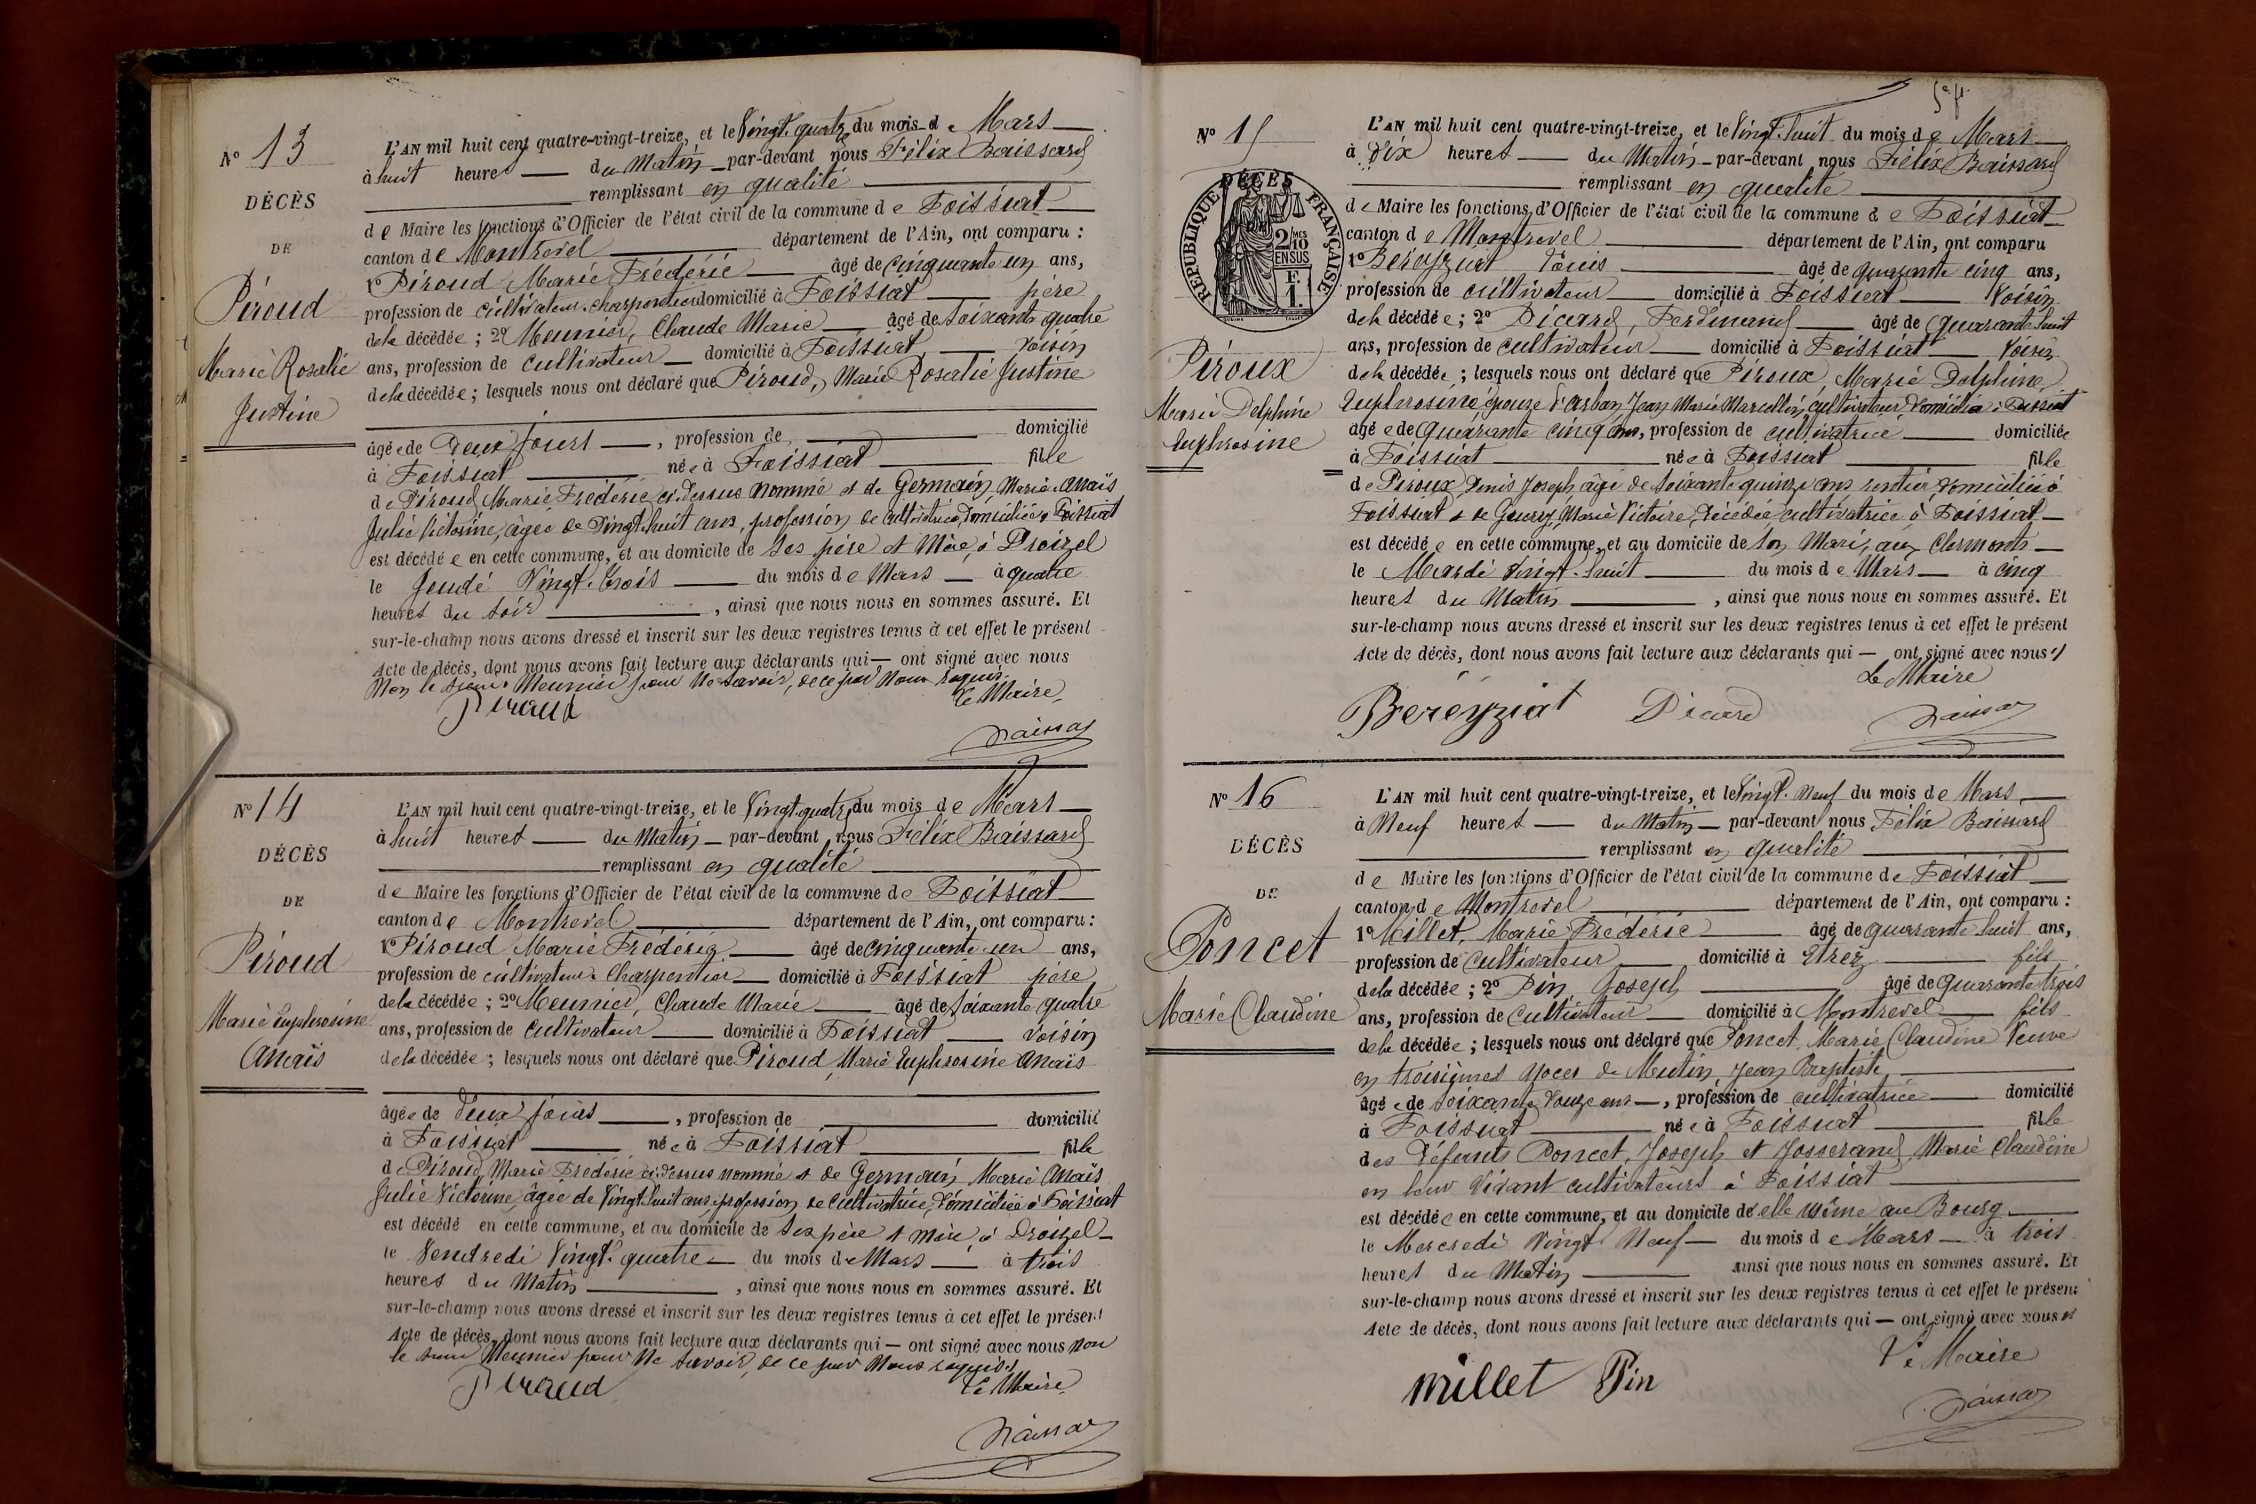 N° 13
DÉCÈS
DE
Piroud
Marie Rosalie
Justine
L'AN mil huit cent quatre-vingt-treize, et le Vingt-quatre du mois de Mars
à huit heures du Matin par-devant nous Félix Baissard
remplissant en qualité
de Maire les fonctions d'Officier de l'état civil de la commune de Foissiat
canton de Montrevel département de l'Ain, ont comparu :
1° Piroud Marie Frédéric âgé de cinquante un ans,
profession de cultivateur charpentier domicilié à Foissiat père
de la décédée ; 2° Meunier, Claude Marie âgé de soixante quatre
ans, profession de cultivateur domicilié à Foissiat voisin
de la décédée ; lesquels nous ont déclaré que Piroud, Marie Rosalie Justine
âgée de Deux jours , profession de domicilié
à Foissiat née à Foissiat fille
de Piroud Marie Frédéric ci-dessus nommé et de Germain Marie Anaïs
Julie Victorine, âgée de Vingt-huit ans, profession de cultivatrice, domiciliée à Foissiat
est décédée en cette commune, et au domicile de ses père et Mère, à Droizel
le Jeudi Vingt-trois du mois de Mars à quatre
heures du soir , ainsi que nous nous en sommes assuré. Et
sur-le-champ nous avons dressé et inscrit sur les deux registres tenus à cet effet le présent
Acte de décès, dont nous avons fait lecture aux déclarants qui — ont signé avec nous
Non le sieur Meunier pour ne savoir, de ce par Nous requis.
Le Maire,
Piroud
Baissard
N° 14
DÉCÈS
DE
Piroud
Marie Euphrosine
Anaïs
L'AN mil huit cent quatre-vingt-treize, et le Vingt-quatre du mois de Mars
à huit heures du Matin par-devant nous Félix Baissard
remplissant en qualité
de Maire les fonctions d'Officier de l'état civil de la commune de Foissiat
canton de Montrevel département de l'Ain, ont comparu :
1° Piroud Marie Frédéric âgé de cinquante un ans,
profession de cultivateur Charpentier domicilié à Foissiat père
de la décédée ; 2° Meunier, Claude Marie âgé de soixante quatre
ans, profession de cultivateur domicilié à Foissiat Voisin
de la décédée ; lesquels nous ont déclaré que Piroud, Marie Euphrosine Anaïs
âgée de deux jours , profession de domicilié
à Foissiat née à Foissiat fille
de Piroud Marie Frédéric ci-dessus nommé et de Germain Marie Anaïs
Julie Victorine, âgée de Vingt-huit ans, profession de cultivatrice, domiciliée à Foissiat
est décédé en cette commune, et au domicile de ses père et mère à Droizel
le Vendredi Vingt-quatre du mois de Mars à trois
heures du Matin , ainsi que nous nous en sommes assuré. Et
sur-le-champ nous avons dressé et inscrit sur les deux registres tenus à cet effet le présent
Acte de décès, dont nous avons fait lecture aux déclarants qui — ont signé avec nous non
le sieur Meunier pour Ne savoir, de ce par Nous requis.
Le Maire
Piroud
Baissard
N° 15
DÉCÈS
RÉPUBLIQUE FRANÇAISE
2/10 MES
EN SUS
F.
1.
Piroux
Marie Delphine
Euphrosine
L'AN mil huit cent quatre-vingt-treize, et le Vingt-huit du mois de Mars
à dix heures du Matin par-devant nous Félix Baissard
remplissant en qualité
de Maire les fonctions d'Officier de l'état civil de la commune de Foissiat
canton de Montrevel département de l'Ain, ont comparu
1° Bereyziat Louis âgé de quarante cinq ans,
profession de cultivateur domicilié à Foissiat Voisin
de la décédée ; 2° Picard, Ferdinand âgé de quarante huit
ans, profession de cultivateur domicilié à Foissiat Voisin
de la décédée ; lesquels nous ont déclaré que Piroux, Marie Delphine,
Euphrosine épouse d'Arban Jean Marie Marcellin, cultivateur domicilié à Foissiat
âgée de quarante cinq ans, profession de cultivatrice domiciliée
à Foissiat née à Foissiat fille
de Piroux Denis Joseph âgé de soixante quinze ans rentier domicilié à
Foissiat et de Marie Victoire, décédée cultivatrice à Foissiat
est décédée en cette commune, et au domicile de son Mari, aux Clermonts
le Mardi vingt-huit du mois de Mars à cinq
heures du Matin , ainsi que nous nous en sommes assuré. Et
sur-le-champ nous avons dressé et inscrit sur les deux registres tenus à cet effet le présent
Acte de décès, dont nous avons fait lecture aux déclarants qui — ont signé avec nous
Le Maire
Bereyziat Picard Baissard
N° 16
DÉCÈS
DE
Poncet
Marie Claudine
L'AN mil huit cent quatre-vingt-treize, et le Vingt-Neuf du mois de Mars
à Neuf heures du Matin par-devant nous Félix Baissard
remplissant en qualité
de Maire les fonctions d'Officier de l'état civil de la commune de Foissiat
canton de Montrevel département de l'Ain, ont comparu :
1° Millet, Marie Frédéric âgé de quarante huit ans,
profession de cultivateur domicilié à Etrez fils
de la décédée ; 2° Pin Joseph âgé de quarante trois
ans, profession de cultivateur domicilié à Montrevel fils
de la décédée ; lesquels nous ont déclaré que Poncet, Marie Claudine Veuve
en troisièmes Noces de Mutin Jean Baptiste,
âgée de soixante douze ans , profession de cultivatrice domicilié
à Foissiat née à Foissiat fille
des Défunts Poncet, Joseph et Josserand Marie Claudine
en leur vivant cultivateurs à Foissiat
est décédée en cette commune, et au domicile de elle même au Bourg
le Mercredi Vingt Neuf du mois de Mars à trois
heures du Matin ainsi que nous nous en sommes assuré. Et
sur-le-champ nous avons dressé et inscrit sur les deux registres tenus à cet effet le présent
Acte de décès, dont nous avons fait lecture aux déclarants qui — ont signé avec nous
Le Maire
Millet Pin
Baissard